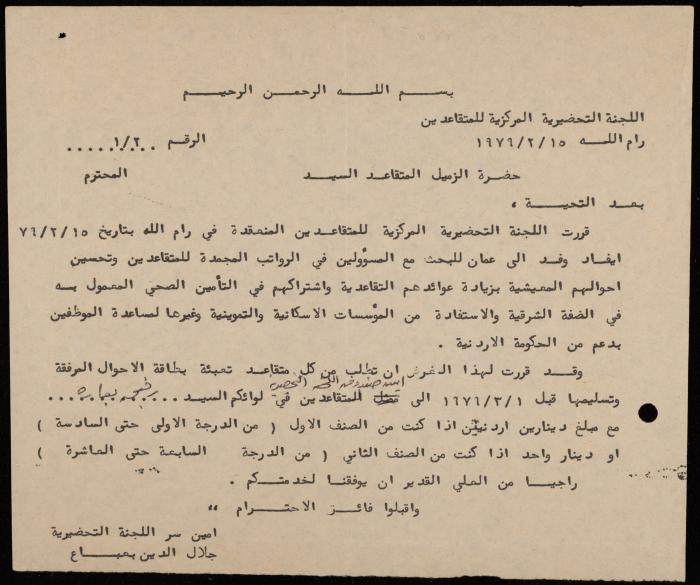 بسم اللــه الرحمن الرحيــم
اللجنة التحضيرية المركزية للمتقاعدين
رام اللــه ١٩٧٦/٢/١٥ الرقم ١/٢
حضرة الزميل المتقاعد السيــد المحترم
بعــد التحيــة ،
قررت اللجنة التحضيرية المركزية للمتقاعـدين المنعقدة في رام الله بتاريخ ٧٦/٢/١٥
ايفـاد وفـد الى عمان للبحث مع المسؤولين في الرواتب المجمدة للمتقاعدين وتحسين
احوالهم المعيشية بزيادة عوائدهم التقاعدية واشتراكهم في التأمين الصحي المعمول بـه
في الضفة الشرقية والاستفادة من المؤسسات الاسكانية والتموينية وغيرها لمساعدة الموظفين
بدعم من الحكومة الاردنية .
وقــد قررت لهـذا الغرض ان تطلب من كل متقاعـد تعبئة بطاقة الاحوال المرفقة
وتسليمها قبل ١٩٧٦/٣/١ الى امين صندوق اللجنة التحضيرية المتقاعدين في لوائكم السيـد
مع مبلغ دينارين اردنيين اذا كنت من الصنف الاول ( من الدرجة الاولى حتى السادسة )
او دينار واحد اذا كنت من الصنف الثاني ( من الدرجة السابعة حتى العاشرة )
راجيـا من العلي القدير ان يوفقنـا لخدمتـكم .
واقبلوا فائـز الاحتـرام ،،
امين سر اللجنة التحضيرية
جلال الدين بعبـاع